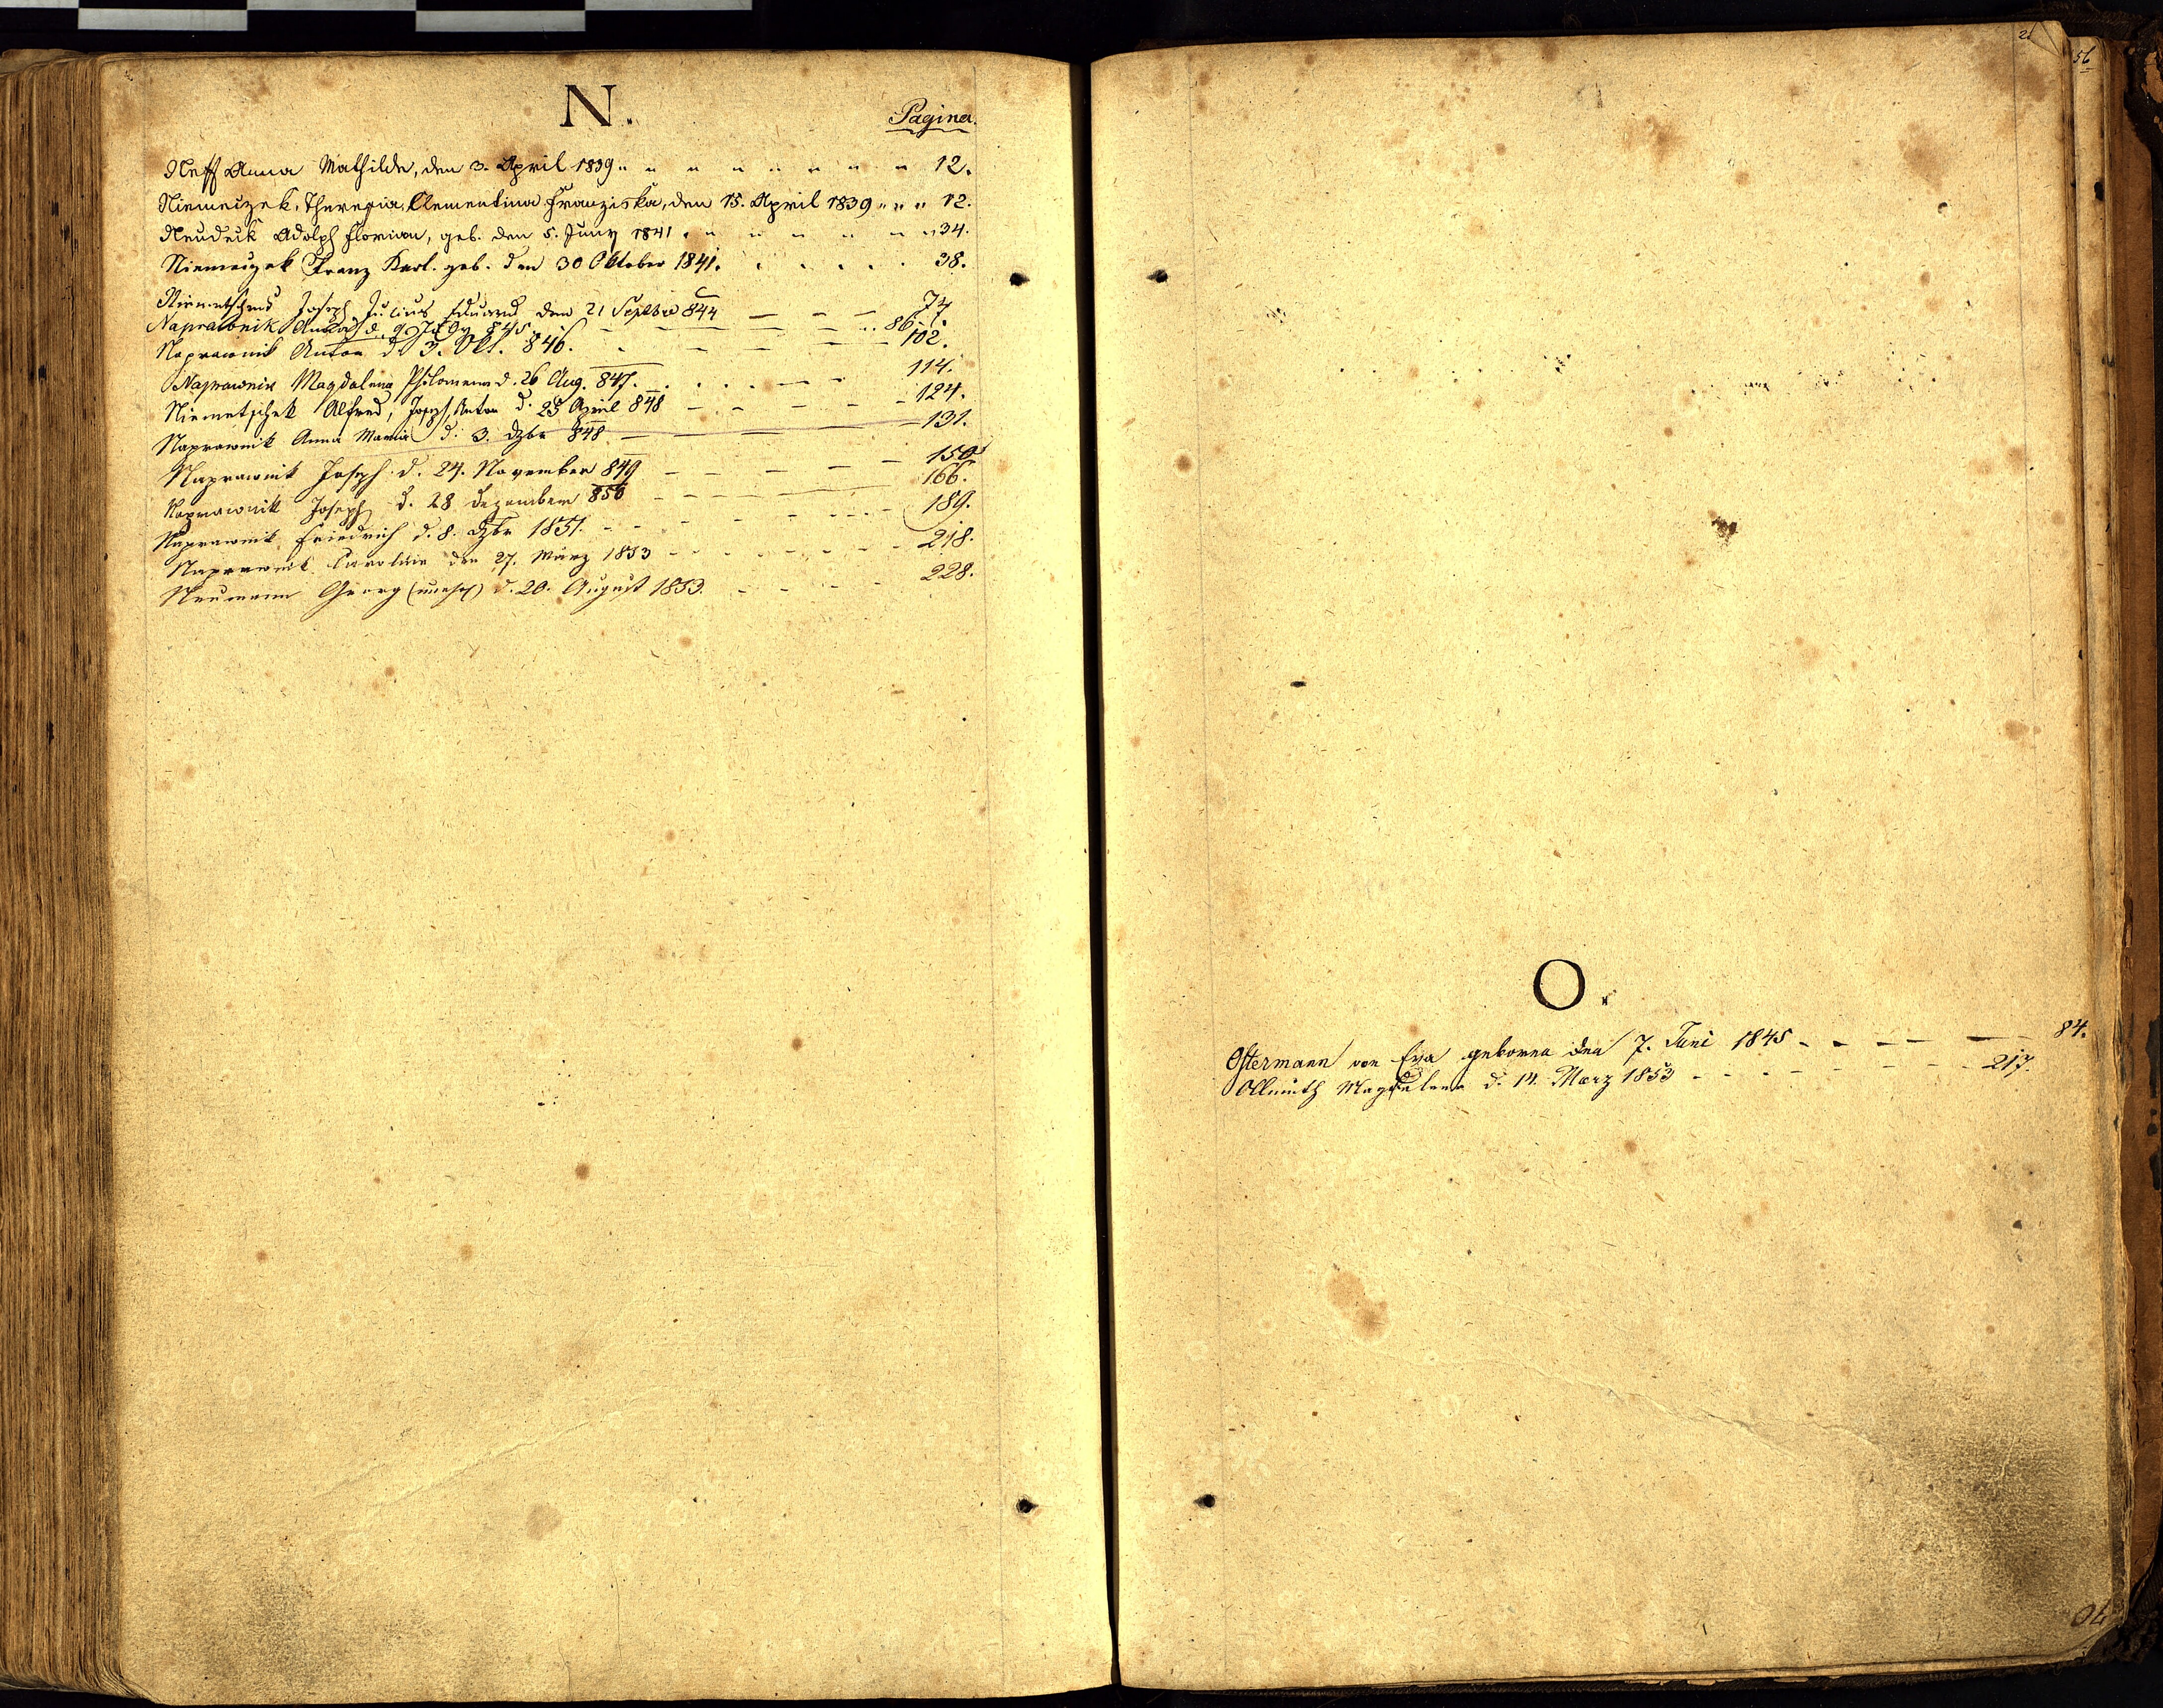 N.
Pagina.
Neff Anna Mathilde, den 3. April 1839 " " " " " " " " 12.
Niemeczek, Theresia, Clementina Franziska, den 15. April 1839 " " " 12.
Neudeck Adolph Florian, geb. den 5. Juny 1841 . " " " " " " 34.
Niemeczek Franz Karl. geb. den 30 Oktober 1841. . . . . . 38.
Joseph Julius Eduard den 21 Septbr 844 — — — — 74
Naprawnik d. 9 July 845. 86.
Naprawnik Anton d. 3. Okt. 846. - — — — — 102.
Naprawnik Magdalena Philomena d. 26 Aug. 847. . . . . — — 114.
Niemetschek Alfred, Joseph, Anton d. 25 April 848 — - — — - 124.
Naprawnik Anna Maria d. 3. Dzbr 848. — — — — 131.
Naprawnik Joseph d. 24. November 849 — — — — — 150
Naprawnik Joseph d. 28 Dezember 850 - - - — — 166.
Naprawnik Friedrich d. 8. Dzbr 1851. - - - - - - - - 189.
Naprawnik Caroline den 27. März 1853 - - - - - - - 218.
Neumann Georg (unehl) d. 20. August 1853. - - - - 228.
56
O.
Ostermann von Eva geboren den 7. Juni 1845 - - - - — — 84.
Ollmuth Magdalena d. 14. März 1853 - - - - - - - - 217.